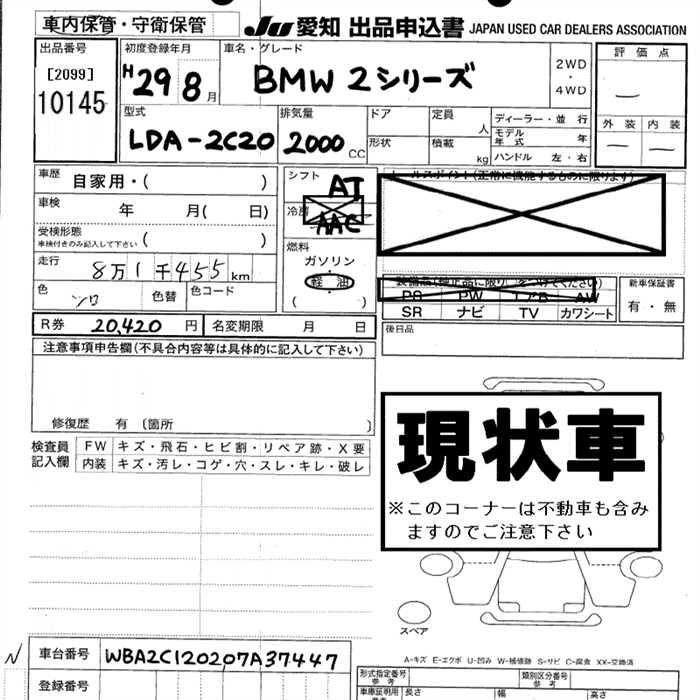 車内保管・守衛保管
JU 愛知 出品申込書 JAPAN USED CAR DEALERS ASSOCIATION
出品番号
[2099]
10145
初度登録年月
H29 8月
車名・グレード
BMW 2シリーズ
2WD
・
4WD
評価点
—
外装 内装
— —
型式
LDA-2C20
排気量
2000 CC
ドア
形状
定員 人
積載 kg
ディーラー・並行
モデル年式 年
ハンドル 左・右
車歴 自家用・( )
車検 年 月( 日)
受検形態
車検付きのみ記入して下さい ( )
走行 8万1千455km
色 シロ 色替 色コード
シフト AT
冷房 AAC
燃料
ガソリン
軽油
( )
セールスポイント(正常に機能するものに限ります)
装備品(純正品に限り○をつけてください)
PS PW エアB AW
SR ナビ TV カワシート
新車保証書
有・無
後日品
R券 20,420円 名変期限 月 日
注意事項申告欄(不具合内容等は具体的に記入して下さい)
修復歴 有 〔箇所 〕
検査員記入欄
FW キズ・飛石・ヒビ割・リペア跡・X要
内装 キズ・汚レ・コゲ・穴・スレ・キレ・破レ
現状車
※このコーナーは不動車も含み
ますのでご注意下さい
スペア
A-キズ E-エクボ U-凹み W-補修跡 S-サビ C-腐食 XX-交換済
車台番号 WBA2C120207A37447
登録番号
形式指定番号
参考
類別区分番号
参考
車庫証明用
参考
長さ 幅 高さ